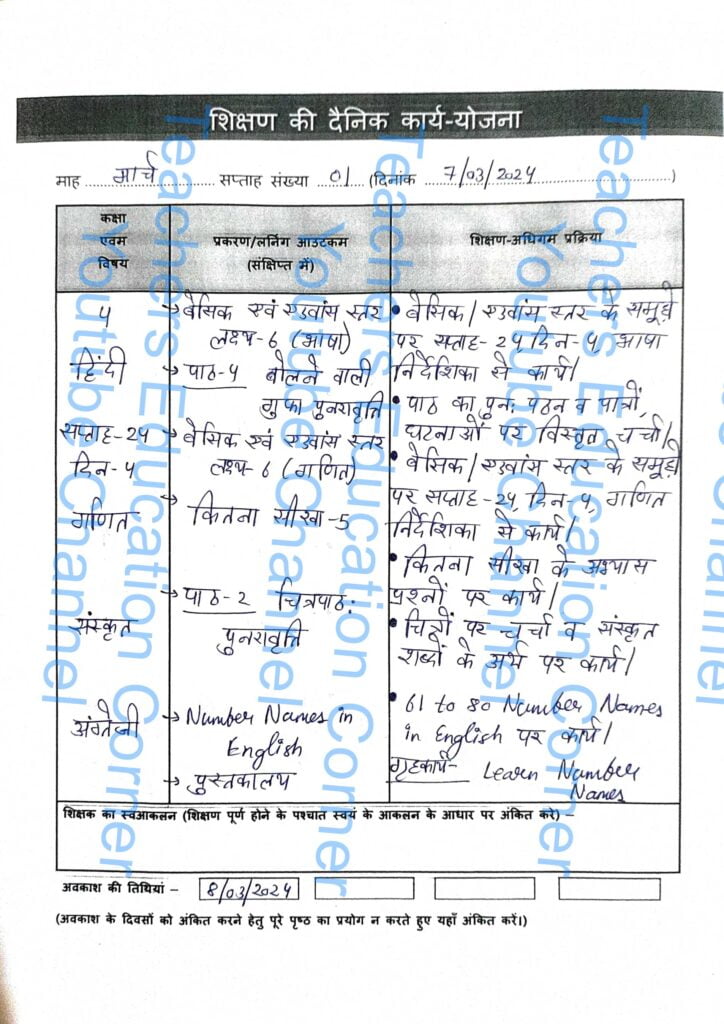 शिक्षण की दैनिक कार्य-योजना
माह मार्च सप्ताह संख्या 01 (दिनांक 7/03/2024)
कक्षा
एवम
विषय
प्रकरण/लर्निंग आउटकम
(संक्षिप्त में)
शिक्षण-अधिगम प्रक्रिया
4
हिंदी
सप्ताह-24
दिन-4
गणित
संस्कृत
अंग्रेजी
→ बेसिक एवं एडवांस स्तर
लक्ष्य-6 (भाषा)
→ पाठ-4 बोलने वाली
गुफा पुनरावृत्ति
→ बेसिक एवं एडवांस स्तर
लक्ष्य-6 (गणित)
→ कितना सीखा-5
→ पाठ-2 चित्रपाठ:
पुनरावृत्ति
→ Number Names in
English
→ पुस्तकालय
• बेसिक/एडवांस स्तर के समूहों
पर सप्ताह-24, दिन-4, भाषा
निर्देशिका से कार्य।
• पाठ का पुन: पठन व पात्रों,
घटनाओं पर विस्तृत चर्चा।
• बेसिक/एडवांस स्तर के समूहों
पर सप्ताह-24, दिन-4, गणित
निर्देशिका से कार्य।
• कितना सीखा के अभ्यास
प्रश्नों पर कार्य।
• चित्रों पर चर्चा व संस्कृत
शब्दों के अर्थ पर कार्य।
• 61 to 80 Number Names
in English पर कार्य।
गृहकार्य- Learn Number
Names
शिक्षक का स्वआकलन (शिक्षण पूर्ण होने के पश्चात स्वयं के आकलन के आधार पर अंकित करे) –
अवकाश की तिथियां – 8/03/2024
(अवकाश के दिवसों को अंकित करने हेतु पूरे पृष्ठ का प्रयोग न करते हुए यहाँ अंकित करें।)
Teachers Education Corner
Youtube Channel
Teachers Education Corner
Youtube Channel
Teachers Education Corner
Youtube Channel